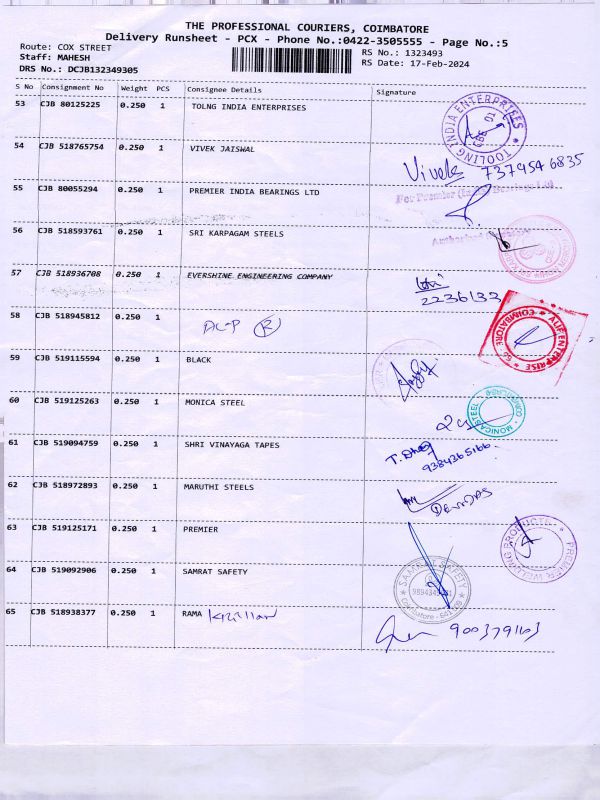 THE PROFESSIONAL COURIERS, COIMBATORE
Delivery Runsheet - PCX - Phone No.:0422-3505555 - Page No.:5
Route: COX STREET
Staff: MAHESH
DRS No.: DCJB132349305
RS No.: 1323493
RS Date: 17-Feb-2024
S No Consignment No Weight PCS Consignee Details Signature
53 CJB 80125225 0.250 1 TOLNG INDIA ENTERPRISES
TOOLING INDIA ENTERPRISES
54 CJB 518765754 0.250 1 VIVEK JAISWAL
Vivek 7379546835
55 CJB 80055294 0.250 1 PREMIER INDIA BEARINGS LTD
For Premier (India) Bearings Ltd
56 CJB 518593761 0.250 1 SRI KARPAGAM STEELS
57 CJB 518936708 0.250 1 EVERSHINE ENGINEERING COMPANY
2236133
58 CJB 518945812 0.250 1
ALIF ENTERPRISE
COIMBATORE
59 CJB 519115594 0.250 1 BLACK
60 CJB 519125263 0.250 1 MONICA STEEL
MONICA STEEL
COIMBATORE
61 CJB 519094759 0.250 1 SHRI VINAYAGA TAPES
9384365166
62 CJB 518972893 0.250 1 MARUTHI STEELS
63 CJB 519125171 0.250 1 PREMIER
PREMIER WELDING PRODUCTS
64 CJB 519092906 0.250 1 SAMRAT SAFETY
SAMRAT SAFETY
65 CJB 518938377 0.250 1 RAMA
9003791163